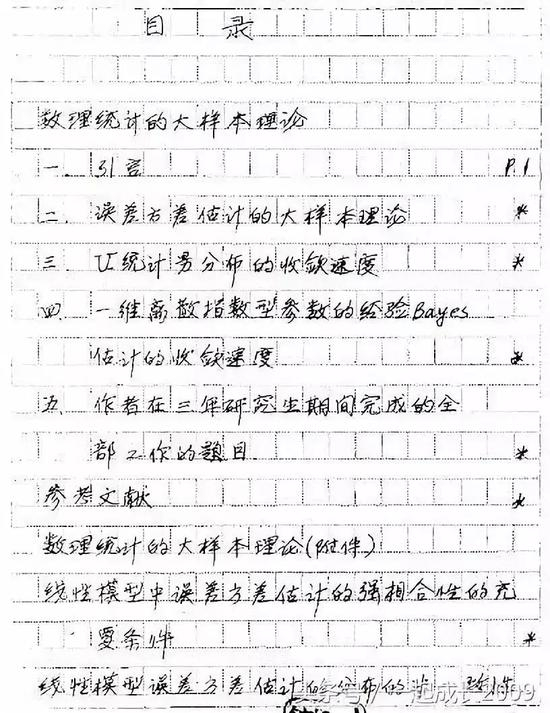 目 录
数理统计的大样本理论
一. 引言 P.1
二. 误差方差估计的大样本理论 *
三. U统计量分布的收敛速度 *
四. 一维离散指数型参数的经验Bayes
估计的收敛速度 *
五. 作者在三年研究生期间完成的全
部工作的题目. *
参考文献 *
数理统计的大样本理论(附件)
线性模型中误差方差估计的强相合性的充
要条件 *
线性模型误差方差估计的分布的 一致
起成长2009